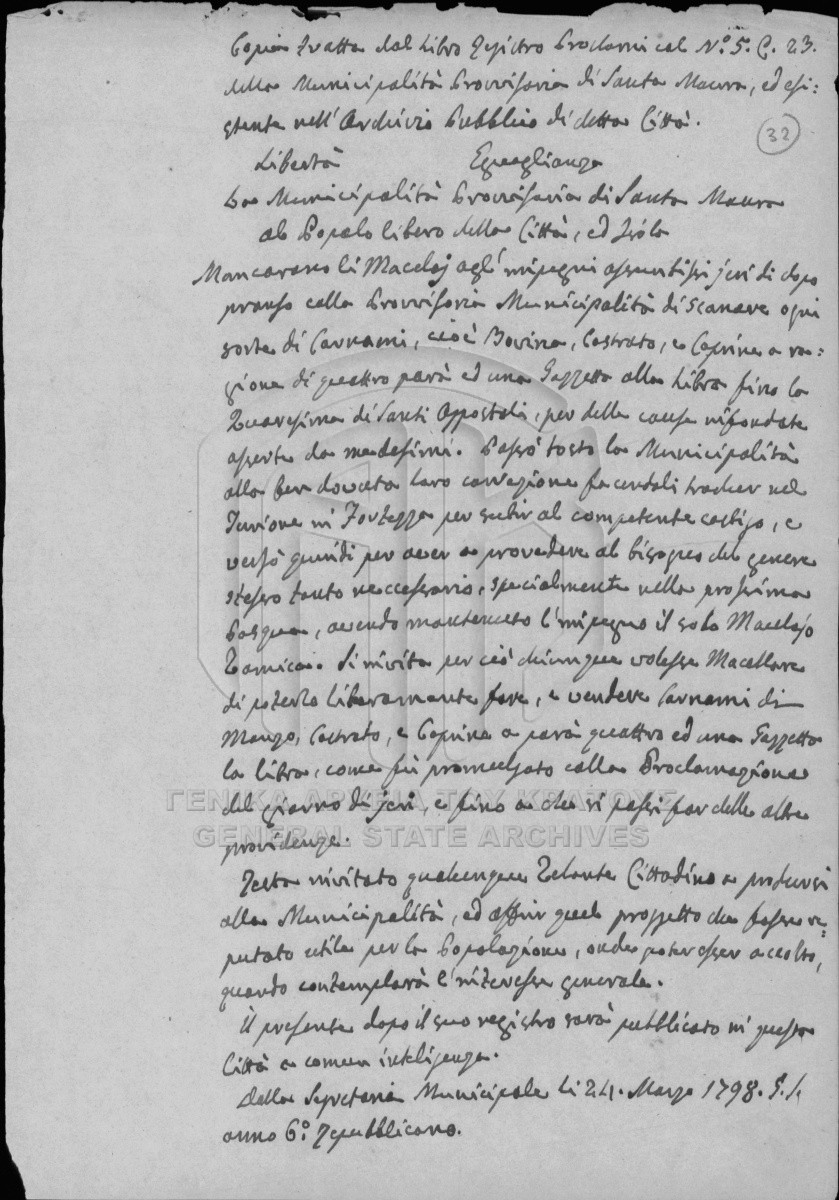 Copia tratta dal Libro Registro Proclami al N.º 5. C. 23.
della Municipalità Provvisoria di Santa Maura, ed esi=
stente nell' Archivio Pubblico di detta Città.
32
Libertà Eguaglianza
La Municipalità Provvisoria di Santa Maura
al Popolo libero della Città, ed Isola
Mancarono li Macelaj agl' impegni assuntissi jeri di dopo
pranso colla Provvisoria Municipalità di Scanare ogni
sorte di Carnami, cioè Bovina, Castrato, e Caprina a ra=
gione di quattro parà ed una Gazzetta alla Libra fino la
Quaresima di Santi Appostoli, per delle cause infondate
asserte da medesimi. Passò tosto la Municipalità
alla ben dovuta loro correzione facendoli tradur nel
Turione in Fortezza per subir al competente castigo, e
versò quindi per aver a provedere al bisogno del genere
stesso tanto neccessario, specialmente nella prossima
Pasqua, avendo mantenuto l'impegno il solo Macelajo
. Si invita per ciò chiunque volesse Macellare
di poterlo liberamente fare, e vendere Carnami di
Manzo, Castrato, e Caprina a parà quattro ed una Gazzetta
la libra, come fù promulgato colla Proclamazione
del giorno di jeri, e fino a che si possi far delle altre
providenze.
ΓΕΝΙΚΑ ΑΡΧΕΙΑ ΤΟΥ ΚΡΑΤΟΥΣ
GENERAL STATE ARCHIVES
Resta invitato qualunque Zelante Cittadino a prodursi
alla Municipalità, ed offrir quel progetto che fosse re=
putato utile per la Popolazione, onde poter esser accolto,
quando contemplarà l'interesse generale.
Il presente dopo il suo registro sarà pubblicato in questa
Città a comun inteligenza.
Dalla Segretaria Municipale li 24. Marzo 1798.
anno 6.º Repubblicano.